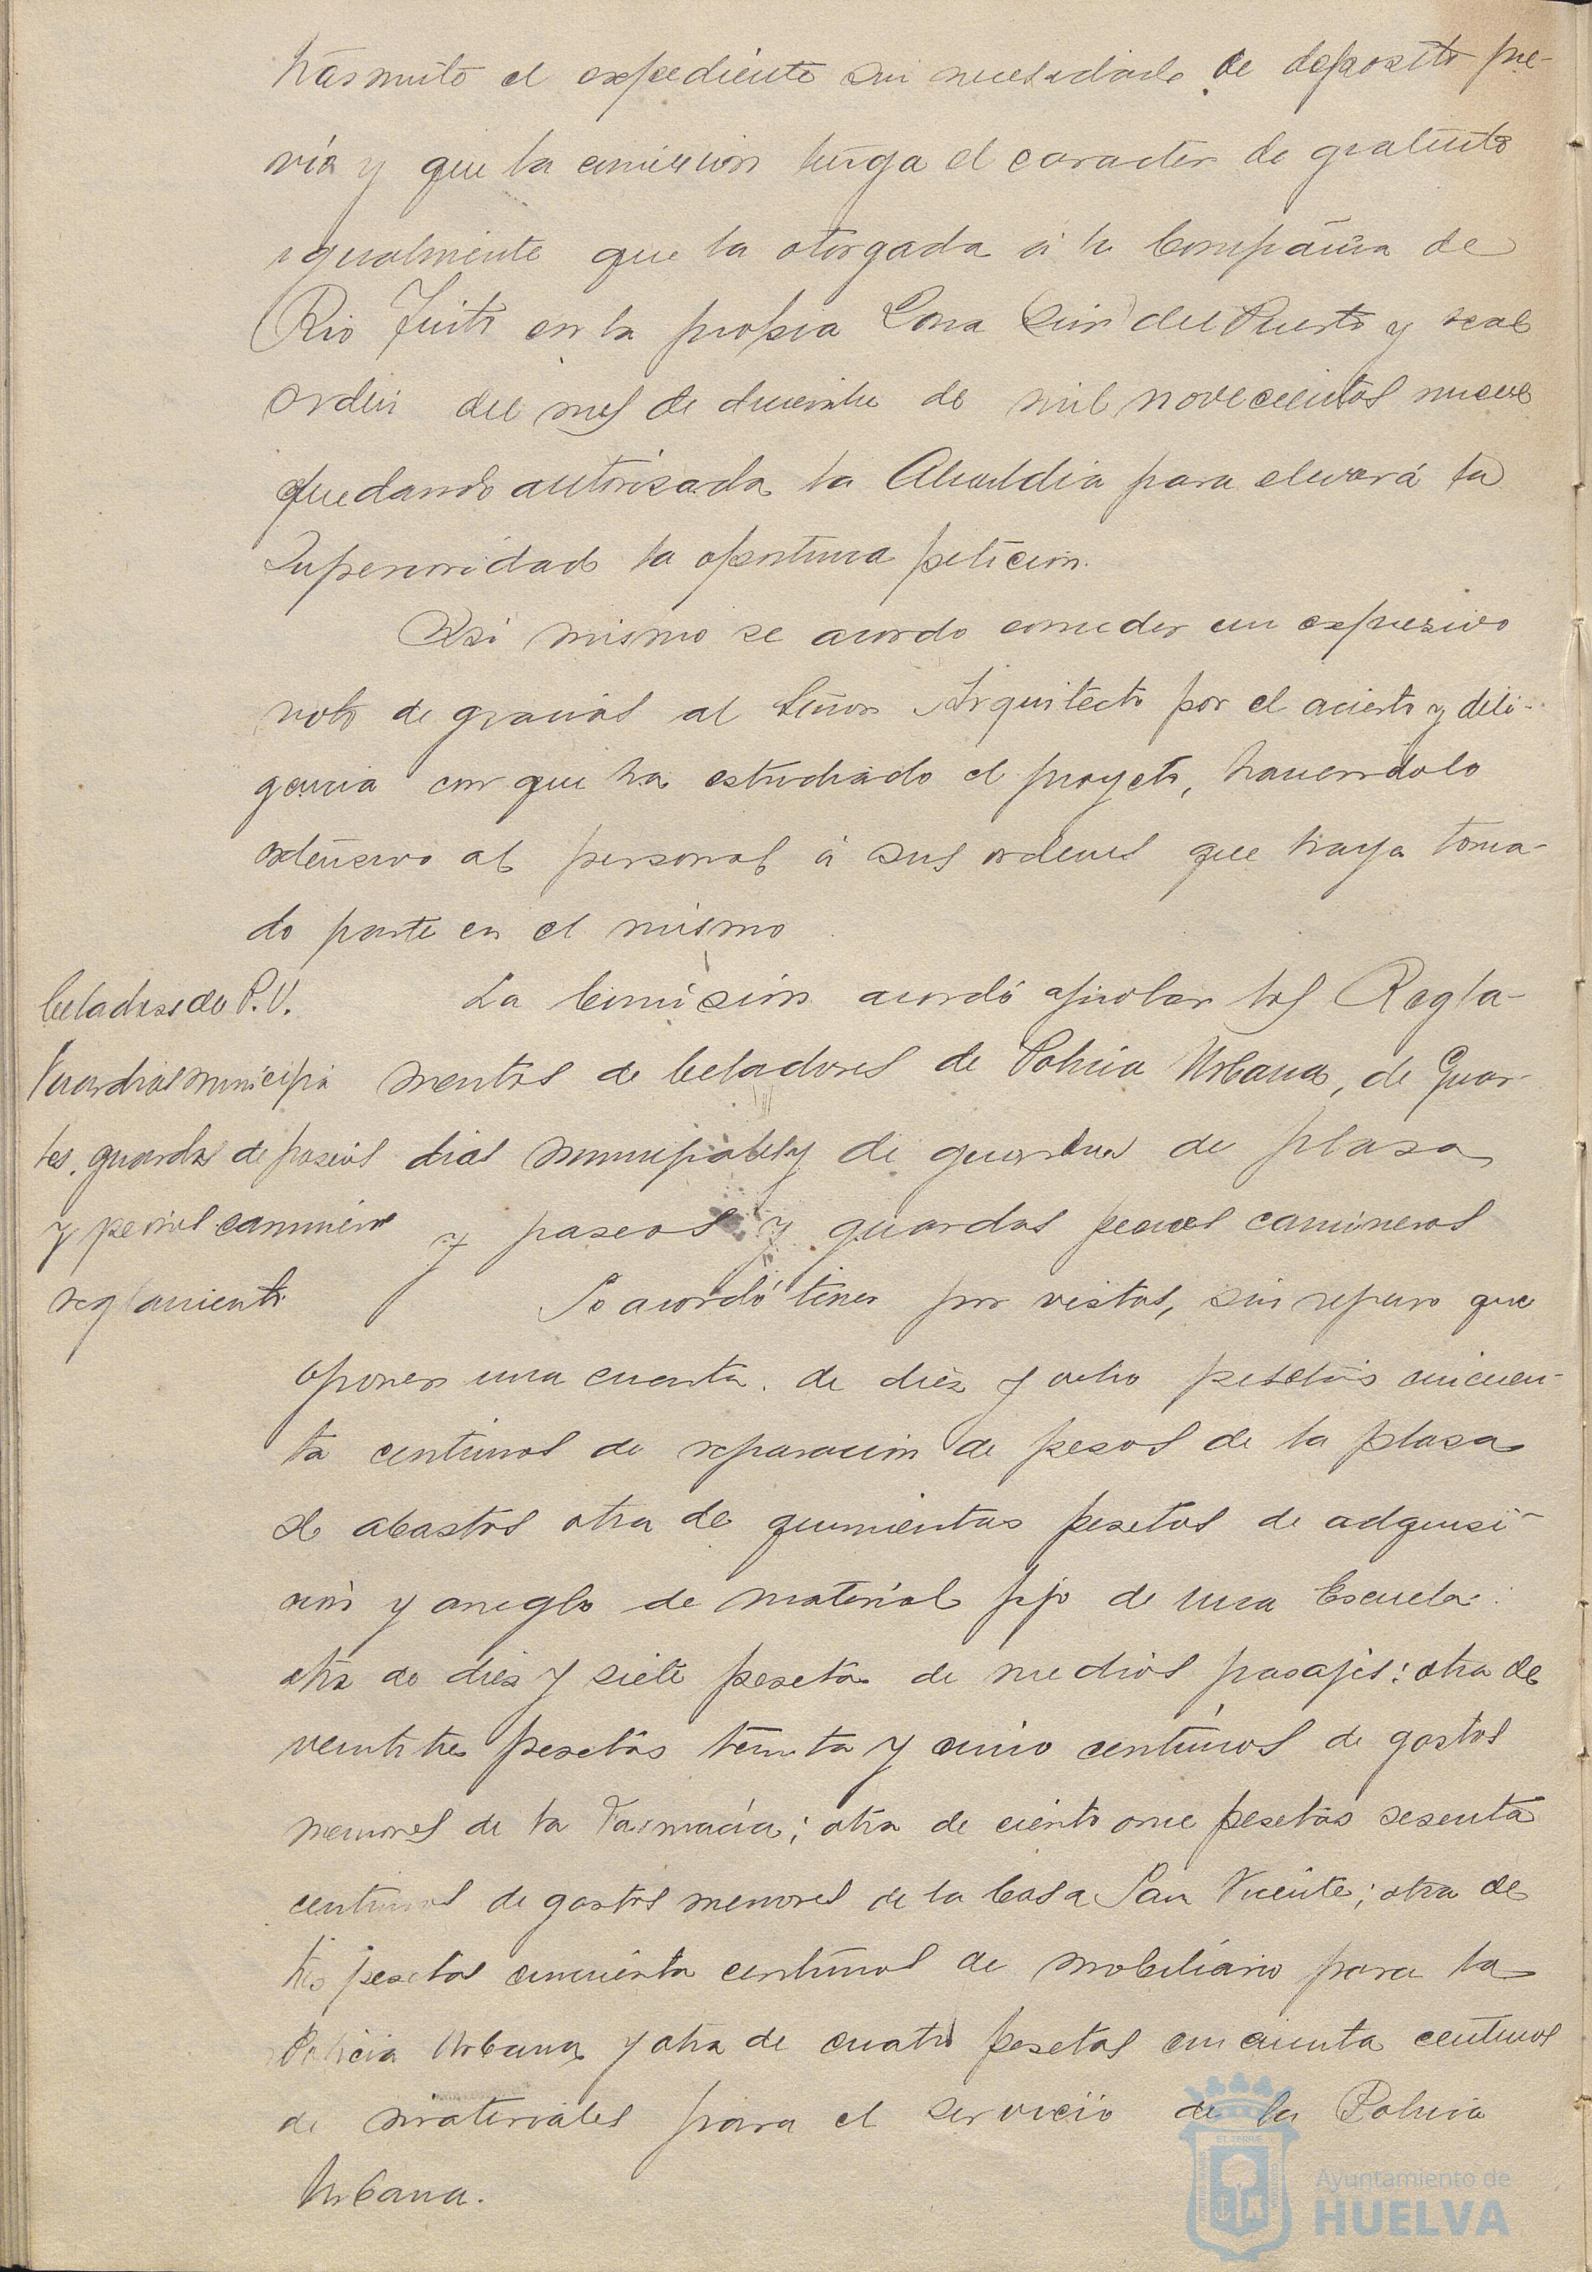 trasmite el expediente sin necesidad de deposito pre-
vio y que la concesion tenga el caracter de gratuito
igualmente que la otorgada á la Compañia de
Rio Tinto en la propia Zona Sur del Puerto y real
orden del mes de diciembre de mil novecientos nueve
quedando autorizada la Alcaldia para elevar á la
Superioridad la oportuna peticion.
Asi mismo se acordo conceder un expresivo
voto de gracias al Señor Arquitecto por el acierto y dili-
gencia con que ha estudiado el proyecto, haciendolo
extensivo al personal á sus ordenes que haya toma-
do parte en el mismo
Celadores de P.U.
Guardias municipa
les, guardas de paseos
y peones camineros
reglamento
La Comision acordó aprobar los Regla-
mentos de Celadores de Policia Urbana, de Guar-
dias municipales y de guardas de plaza
y paseos y guardas peones camineros
Se acordó tener por vistas, sin reparo que
oponer una cuenta de diez y ocho pesetas cincuen-
ta centimos de reparacion de pesos de la plaza
de abastos otra de quinientas pesetas de adquisi-
cion y arreglo de material fijo de una Escuela:
otra de diez y siete pesetas de medios pasajes: otra de
veintitres pesetas treinta y cinco centimos de gastos
menores de la Farmacia; otra de ciento once pesetas sesenta
centimos de gastos menores de la Casa San Vicente; otra de
tres pesetas cincuenta centimos de mobiliario para la
Policia Urbana y otra de cuatro pesetas cincuenta centimos
de materiales para el servicio de la Policia
Urbana.
Ayuntamiento de
HUELVA